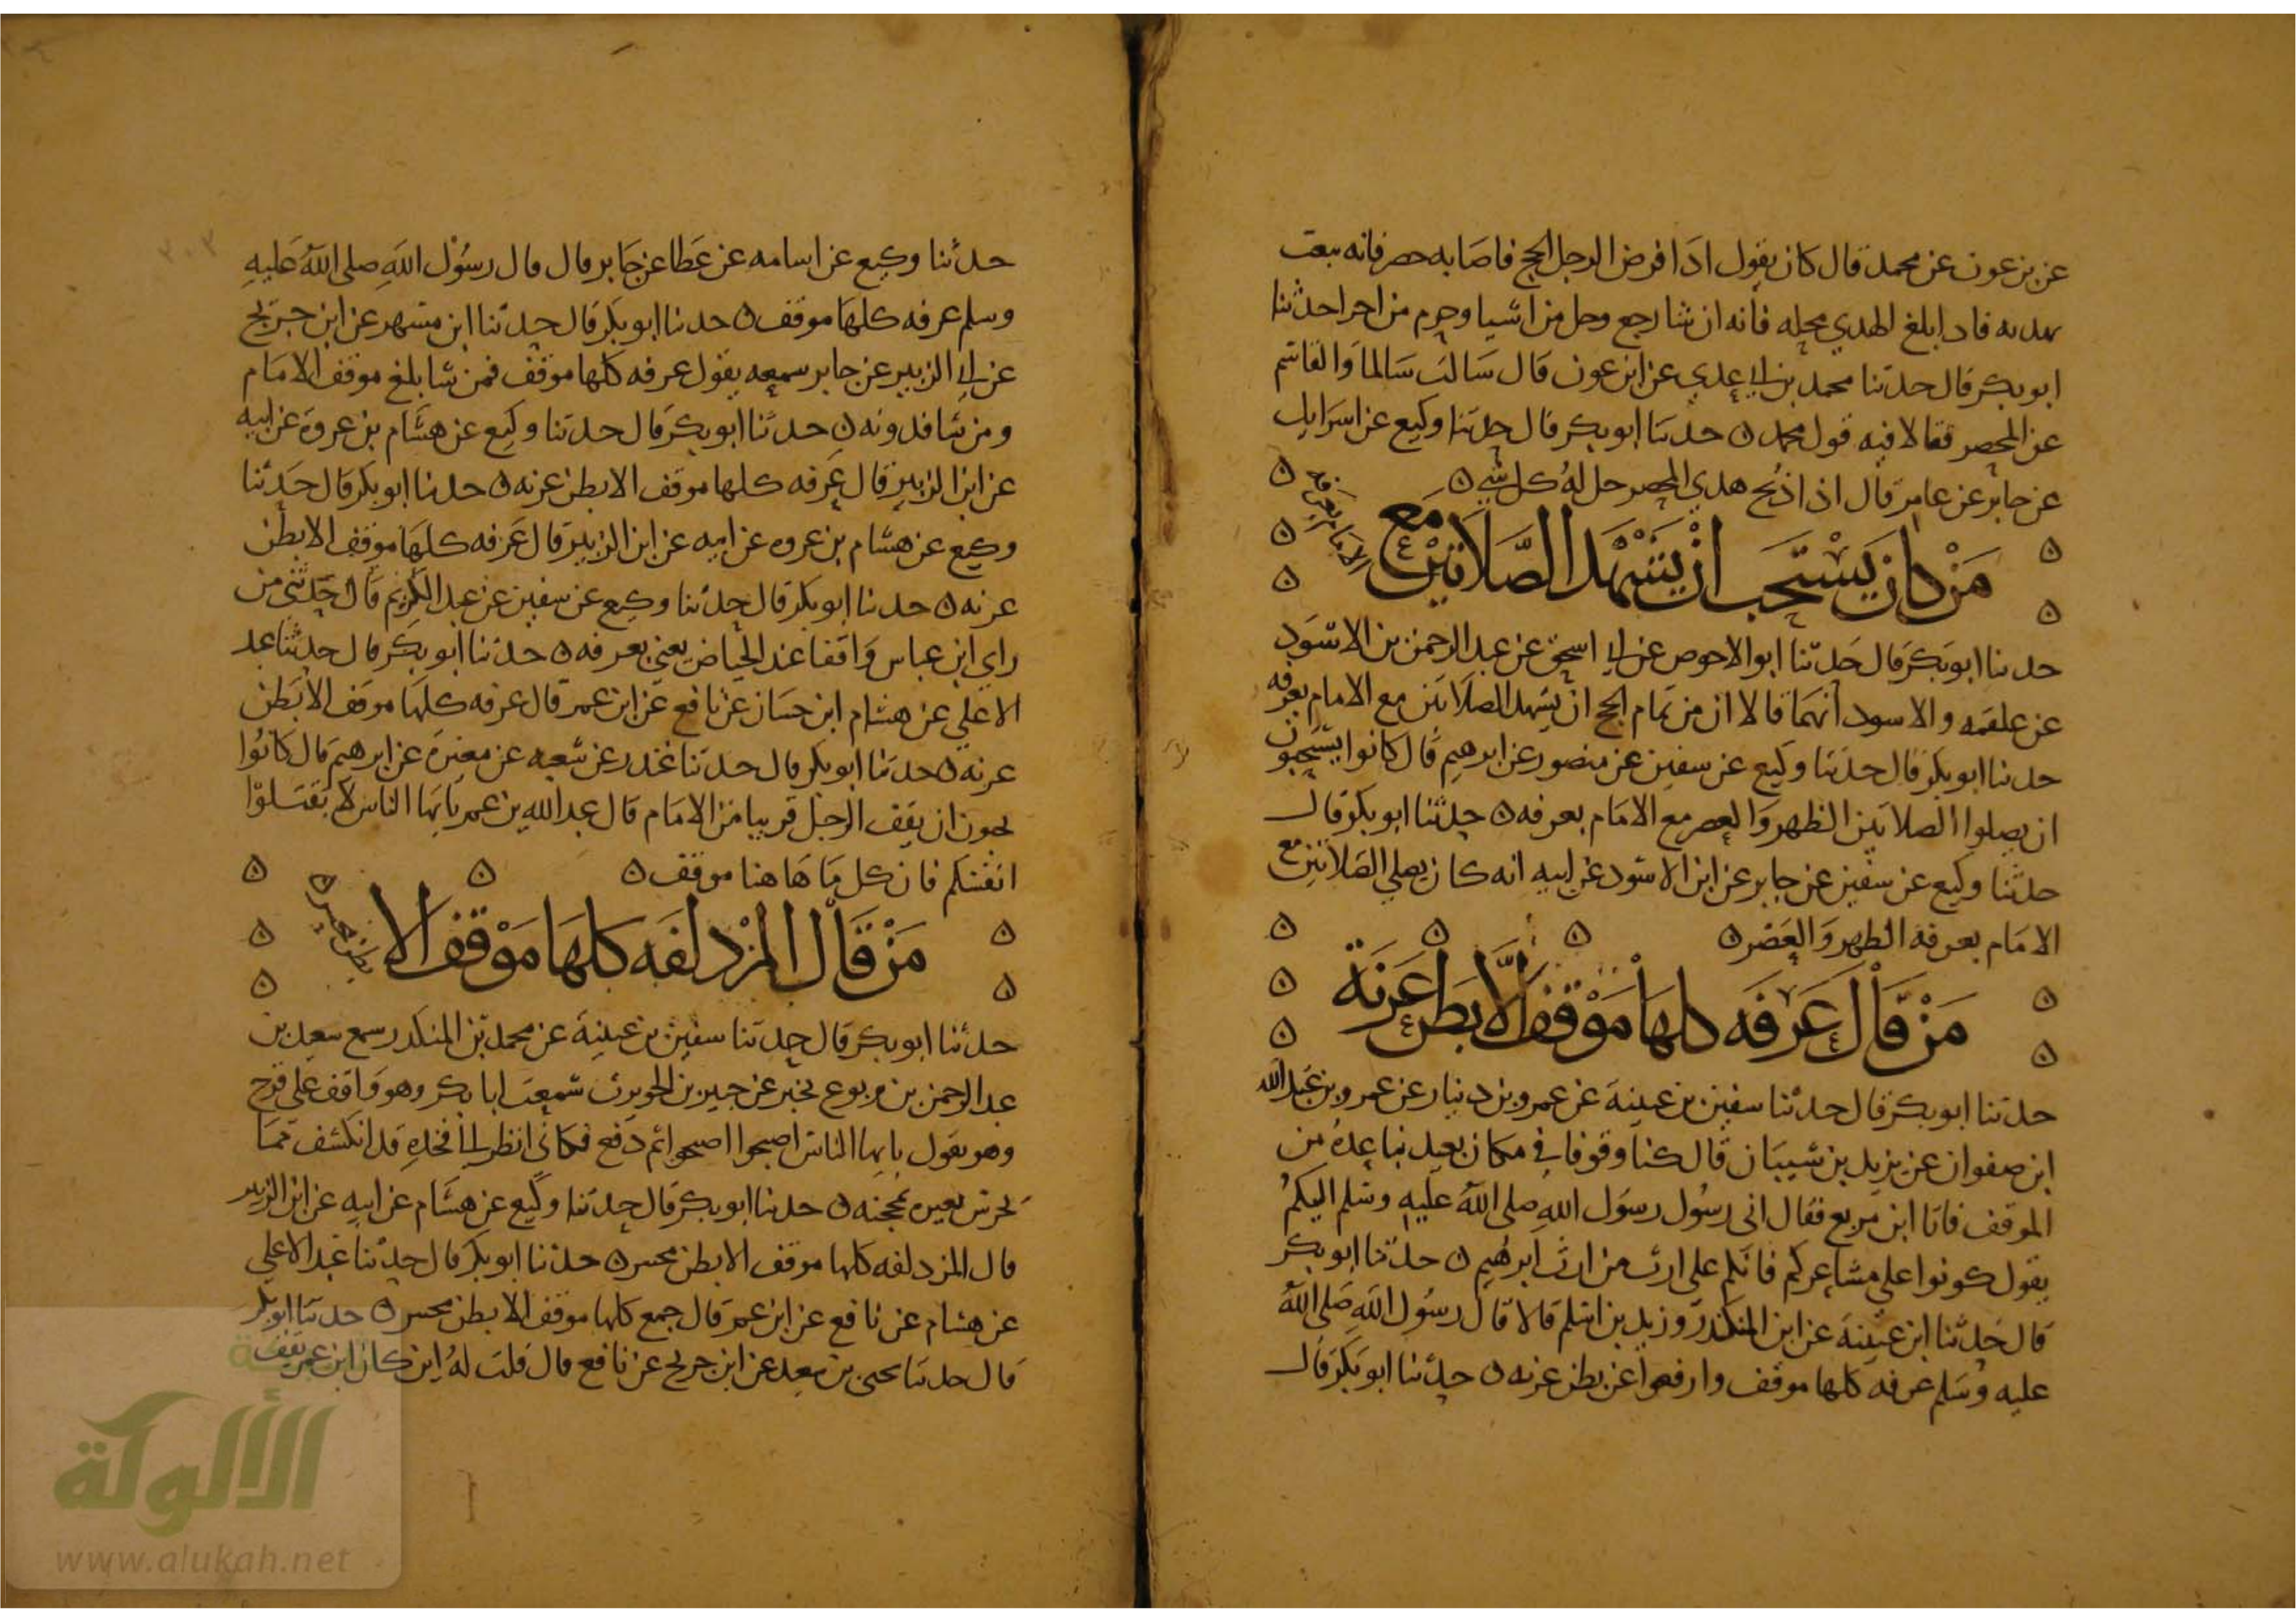 عن بن عون عن محمد قال كان يقول اذا فرض الرجل الحج فاصابه حصر فانه يبعث
بهديه فاذا بلغ الهدي محله فانه ان شا رجع وحل من اشيا وحرم من اخر احدثنا
ابو بكر قال حدثنا محمد بن ابي عدي عن ابن عون قال سالت سالما والقاسم
عن المحصر فقالا فيه قول محمد ن حدثنا ابو بكر قال حدثنا وكيع عن اسرايل
عن جابر عن عامر قال اذا ذبح هدي المحصر حل له كل شي ن
من كان يستحب ان يشهد الصلاتين مع
الامام بعرفه
حدثنا ابو بكر قال حدثنا ابو الاحوص عن ابي اسحق عن عبد الرحمن بن الاسود
عن علقمه والاسود انهما قالا ان من تمام الحج ان يشهد الصلاتين مع الامام بعرفه
حدثنا ابو بكر قال حدثنا وكيع عن سفين عن منصور عن ابرهيم قال كانوا يستحبون
ان يصلوا الصلاتين الظهر والعصر مع الامام بعرفه ن حدثنا ابو بكر قال
حدثنا وكيع عن سفين عن جابر عن ابن الاسود عن ابيه انه كان يصلي الصلاتين مع
الامام بعرفه الظهر والعصر ن
من قال عرفه كلها موقف الا بطن عرنة
حدثنا ابو بكر قال حدثنا سفين بن عيينة عن عمرو بن دينار عن عمرو بن عبد الله
ابن صفوان عن يزيد بن شيبان قال كنا وقوفا في مكان بعيد نباعده من
الموقف فاتانا ابن مربع فقال اني رسول رسول الله صلى الله عليه وسلم اليكم
يقول كونوا على مشاعركم فانكم على ارث من ارث ابرهيم ن حدثنا ابو بكر
قال حدثنا ابن عيينة عن ابن المنكدر وزيد بن اسلم قالا قال رسول الله صلى الله
عليه وسلم عرفه كلها موقف وارفعوا عن بطن عرنه ن حدثنا ابو بكر قال
حدثنا وكيع عن اسامه عن عطا عن جابر قال قال رسول الله صلى الله عليه
وسلم عرفه كلها موقف ن حدثنا ابو بكر قال حدثنا ابن مسهر عن ابن جريج
عن ابي الزبير عن جابر سمعه يقول عرفه كلها موقف فمن شا بلغ موقف الامام
ومن شا فدونه ن حدثنا ابو بكر قال حدثنا وكيع عن هشام بن عروة عن ابيه
عن ابن الزبير قال عرفه كلها موقف الا بطن عرنه ن حدثنا ابو بكر قال حدثنا
وكيع عن هشام بن عروه عن ابيه عن ابن الزبير قال عرفه كلها موقف الا بطن
عرنه ن حدثنا ابو بكر قال حدثنا وكيع عن سفين عن عبد الكريم قال حدثني من
راي ابن عباس واقفا عند الحياض يعني بعرفه ن حدثنا ابو بكر قال حدثنا عبد
الاعلي عن هشام ابن حسان عن نافع عن ابن عمر قال عرفه كلها موقف الا بطن
عرنه ن حدثنا ابو بكر قال حدثنا غندر عن شعبه عن مغيرة عن ابرهيم قال كانوا
يحبون ان يقف الرجل قريبا من الامام قال عبد الله بن عمر يا يها الناس لا تقتلوا
انفسكم فان كل ما هاهنا موقف ن
من قال المزدلفه كلها موقف الا
بطن محسر ن
حدثنا ابو بكر قال حدثنا سفين بن عيينة عن محمد بن المنكدر سمع سعيد بن
عبد الرحمن بن يربوع يخبر عن جبير بن الحويرث سمعت ابا بكر وهو واقف على قزح
وهو يقول يا يها الناس اصبحوا اصبحوا ثم دفع فكاني انظر الي فخذه قد انكشف مما
يحرش بعيره بمحجنه ن حدثنا ابو بكر قال حدثنا وكيع عن هشام عن ابيه عن ابن الزبير
قال المزدلفه كلها موقف الا بطن محسر ن حدثنا ابو بكر قال حدثنا عبد الاعلي
عن هشام عن نافع عن ابن عمر قال جمع كلها موقف الا بطن محسر ن حدثنا ابو بكر
قال حدثنا يحيى بن سعيد عن ابن جريج عن نافع قال قلت له اين كان ابن عمر يقف
الألوكة
www.alukah.net